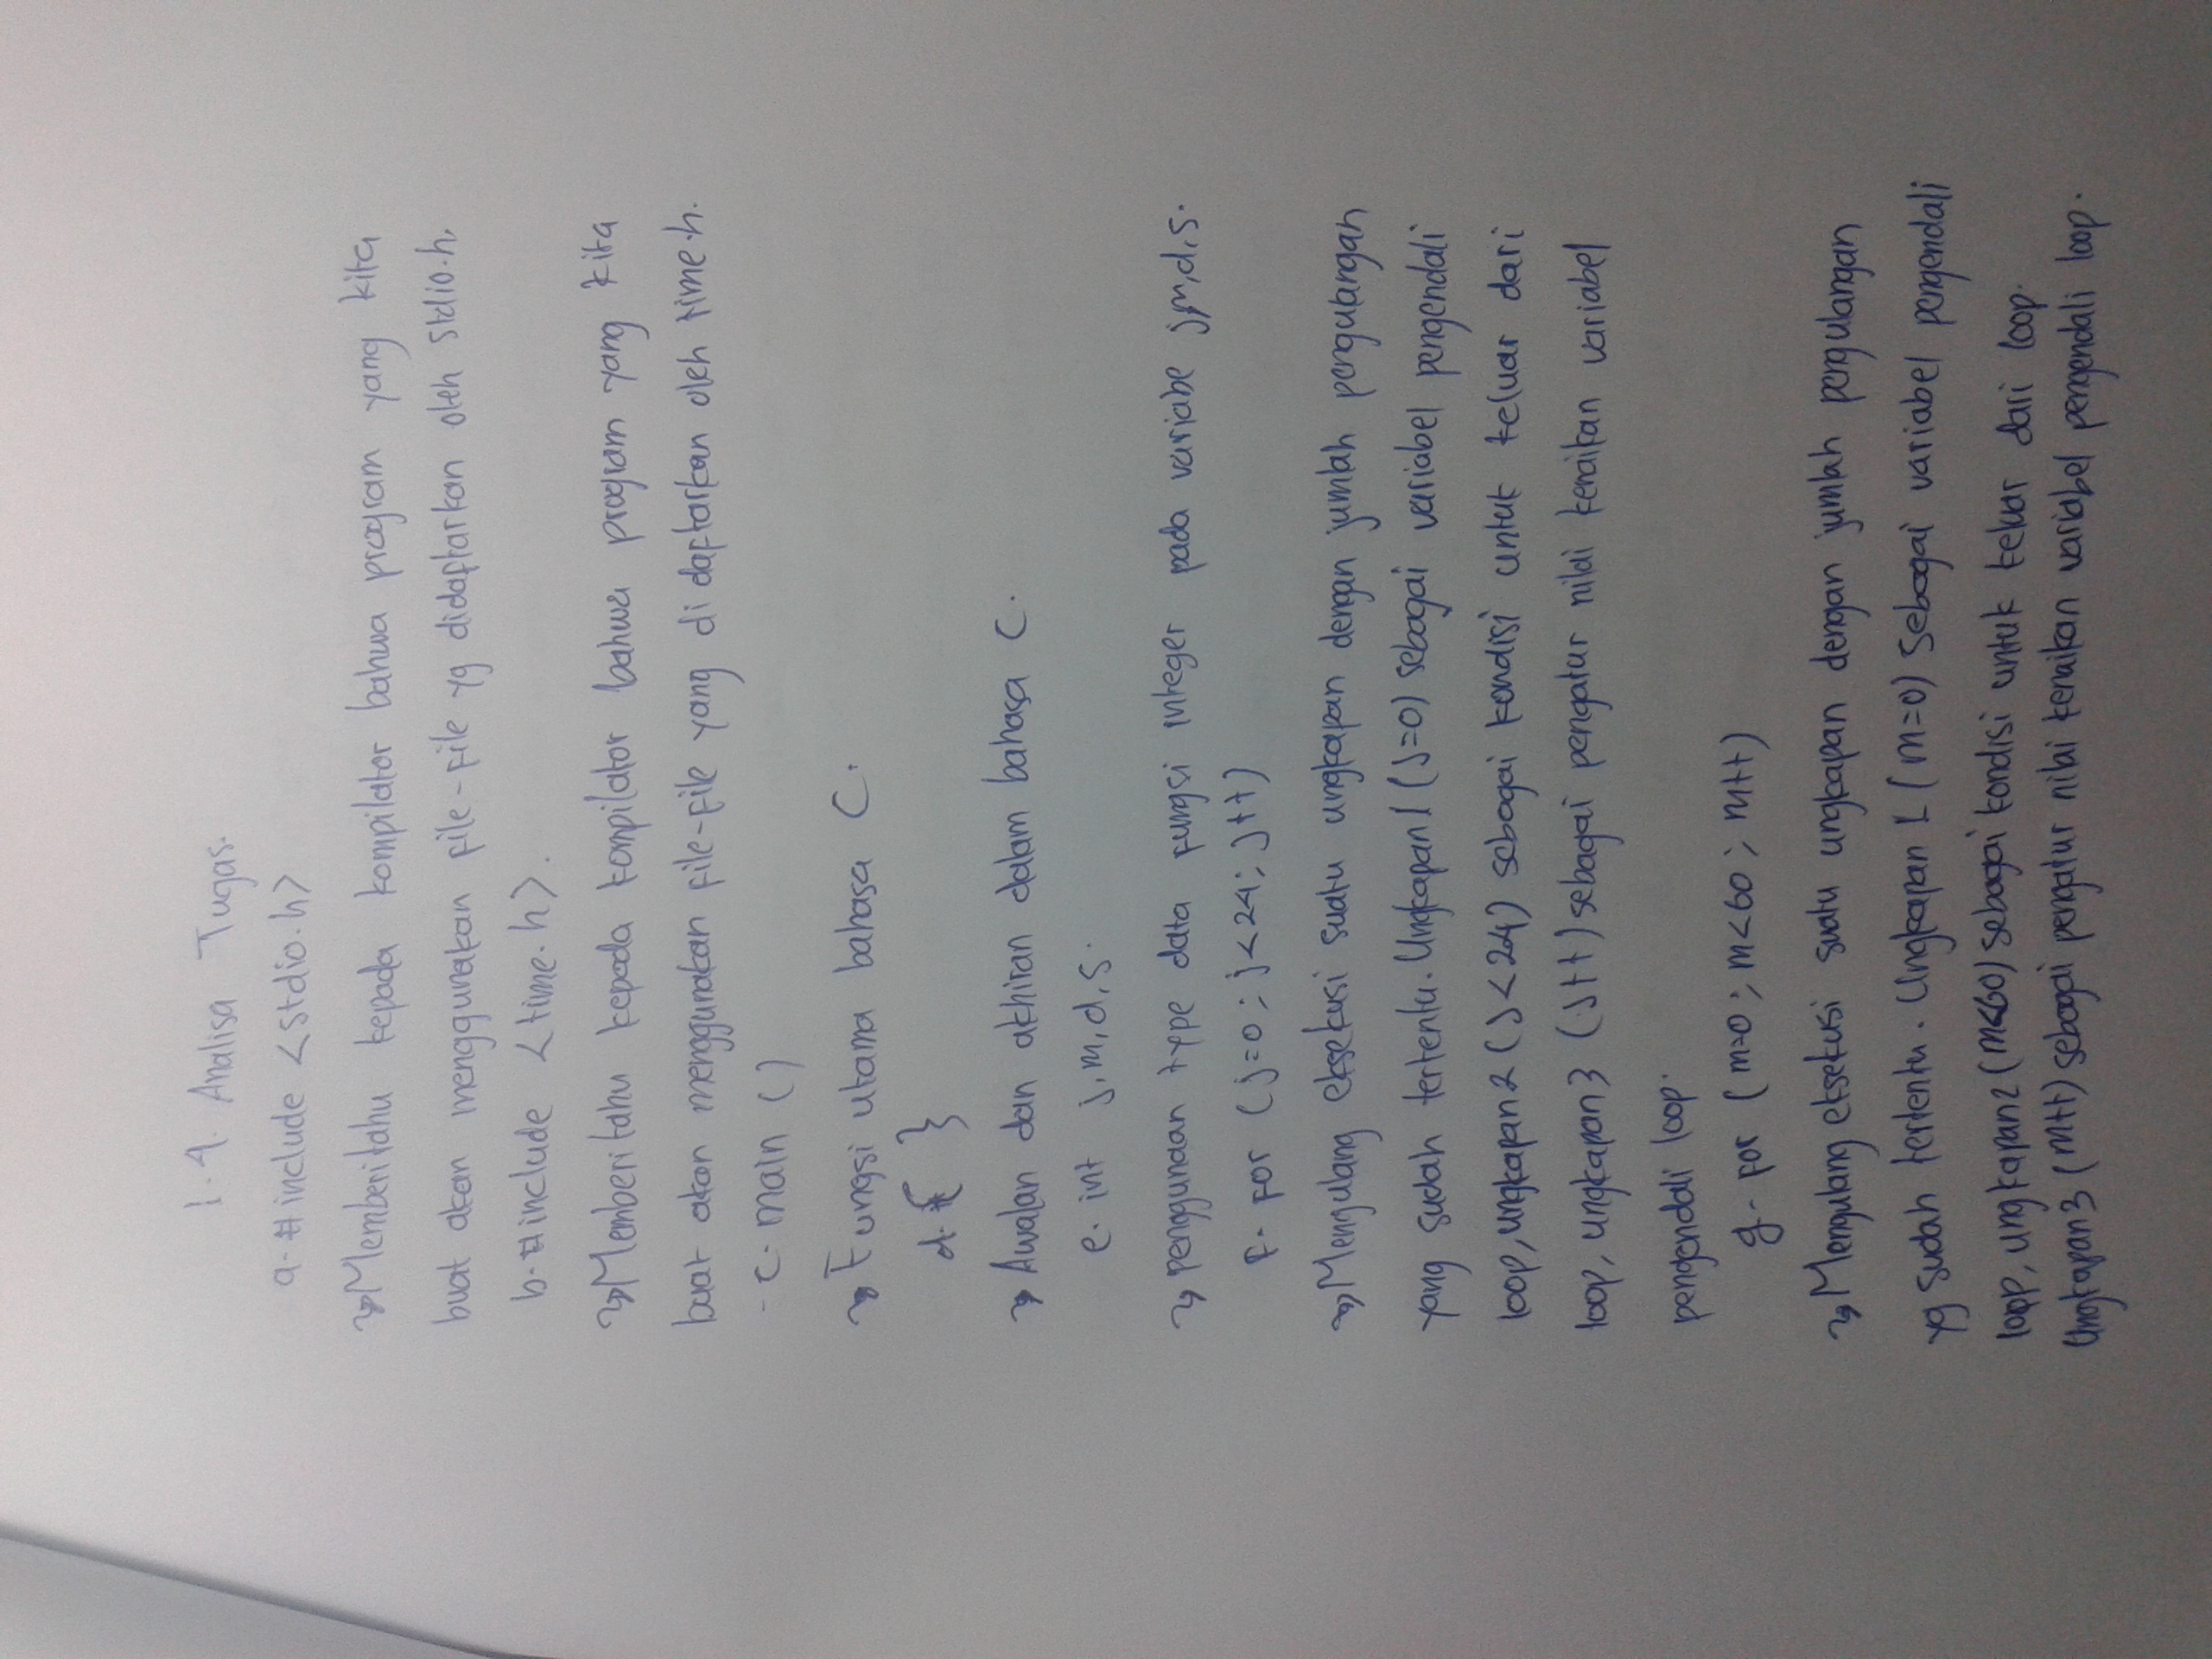 1.4. Analisa Tugas.
a. #include <stdio.h>
Memberitahu kepada kompilator bahwa program yang kita
buat akan menggunakan file-file yg didaftarkan oleh stdio.h.
b. #include <time.h>.
Memberitahu kepada kompilator bahwa program yang kita
buat akan menggunakan file-file yang di daftarkan oleh time.h.
- c. main ()
Fungsi utama bahasa C.
d. { }
Awalan dan akhiran dalam bahasa C.
e. int j,m,d,s.
penggunaan type data fungsi integer pada variabe j,m,d,s.
f. for (j=0 ; j<24; j++)
Mengulang eksekusi suatu ungkapan dengan jumlah pengulangan
yang sudah tertentu. Ungkapan 1 (j=0) sebagai variabel pengendali
loop, ungkapan 2 (j<24) sebagai kondisi untuk keluar dari
loop, ungkapan 3 (j++) sebagai pengatur nilai kenaikan variabel
pengendali loop.
g. for (m=0 ; m<60 ; m++)
Mengulang eksekusi suatu ungkapan dengan jumlah pengulangan
yg sudah tertentu. Ungkapan 1 (m=0) sebagai variabel pengendali
loop, ungkapan 2 (m<60) sebagai kondisi untuk keluar dari loop.
Ungkapan 3 (m++) sebagai pengatur nilai kenaikan variabel pengendali loop.